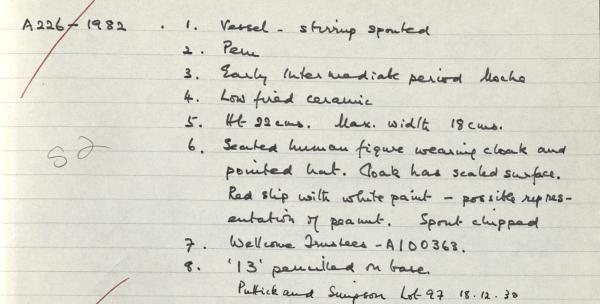 A226-1982 . 1. Vessel - stirrup spouted
2. Peru
3. Early Intermediate period Moche
4. Low fired ceramic
5. Ht 22cms. Max. width 18cms.
6. Seated human figure wearing cloak and
pointed hat. Cloak has scaled surface.
Red slip with white paint - possible repres-
entation of peanut. Spout chipped
52
7. Wellcome Trustees - A100363.
8. '13' pencilled on base.
Puttick and Simpson Lot 97 18.12.30